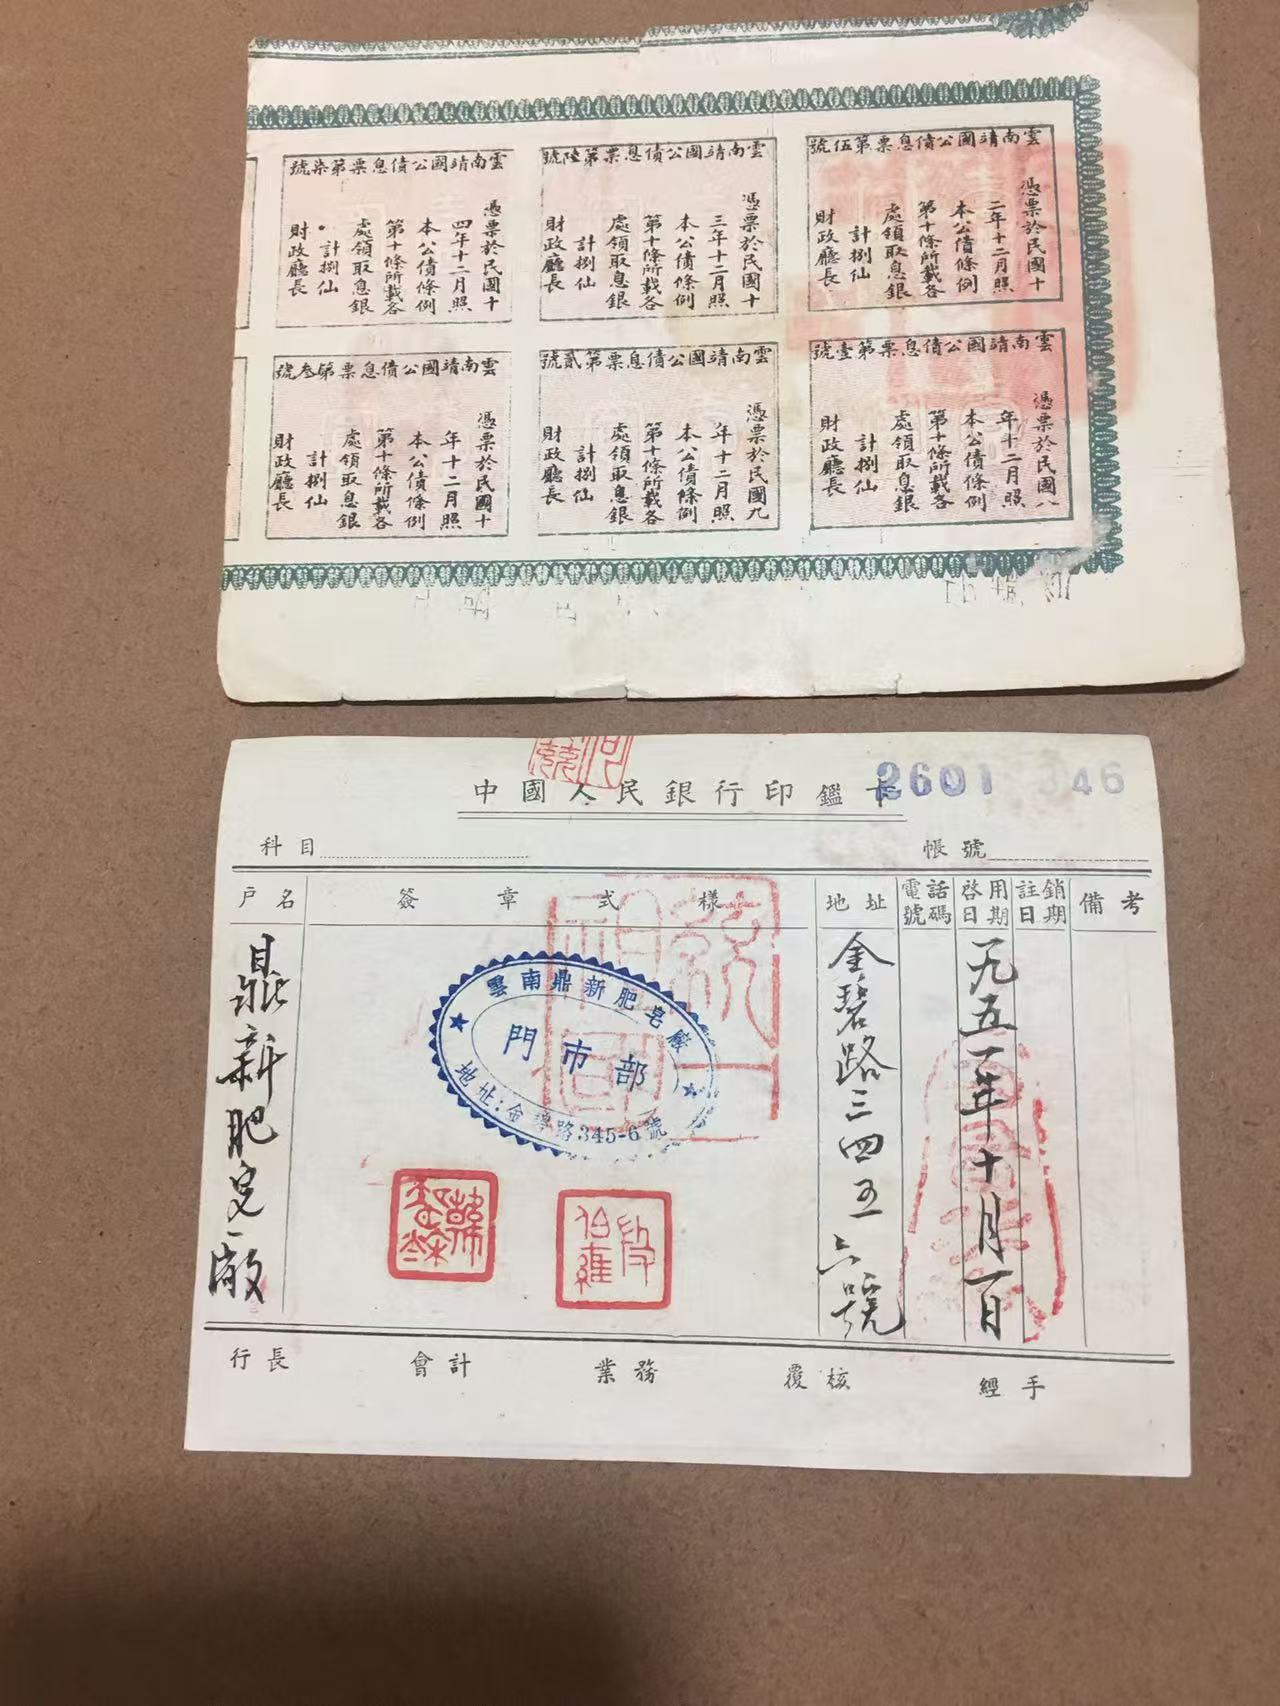 雲南靖國公債息票第伍號
憑票於民國十
二年十二月照
本公債條例
第十條所載各
處領取息銀
計捌仙
財政廳長
雲南靖國公債息票第陸號
憑票於民國十
三年十二月照
本公債條例
第十條所載各
處領取息銀
計捌仙
財政廳長
雲南靖國公債息票第柒號
憑票於民國十
四年十二月照
本公債條例
第十條所載各
處領取息銀
計捌仙
財政廳長
雲南靖國公債息票第壹號
憑票於民國八
年十二月照
本公債條例
第十條所載各
處領取息銀
計捌仙
財政廳長
雲南靖國公債息票第貳號
憑票於民國九
年十二月照
本公債條例
第十條所載各
處領取息銀
計捌仙
財政廳長
雲南靖國公債息票第叁號
憑票於民國十
年十二月照
本公債條例
第十條所載各
處領取息銀
計捌仙
財政廳長
中國人民銀行印鑑卡
2601 346
科目
帳號
戶名
簽章式樣
地址
電話號碼
啓用日期
註銷日期
備考
鼎新肥皂廠
雲南鼎新肥皂廠
門市部
地址:金碧路345-6號
段伯雍
金碧路三四五六號
一九五一年十月一日
行長
會計
業務
覆核
經手